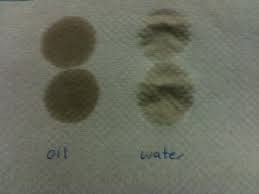 oil water